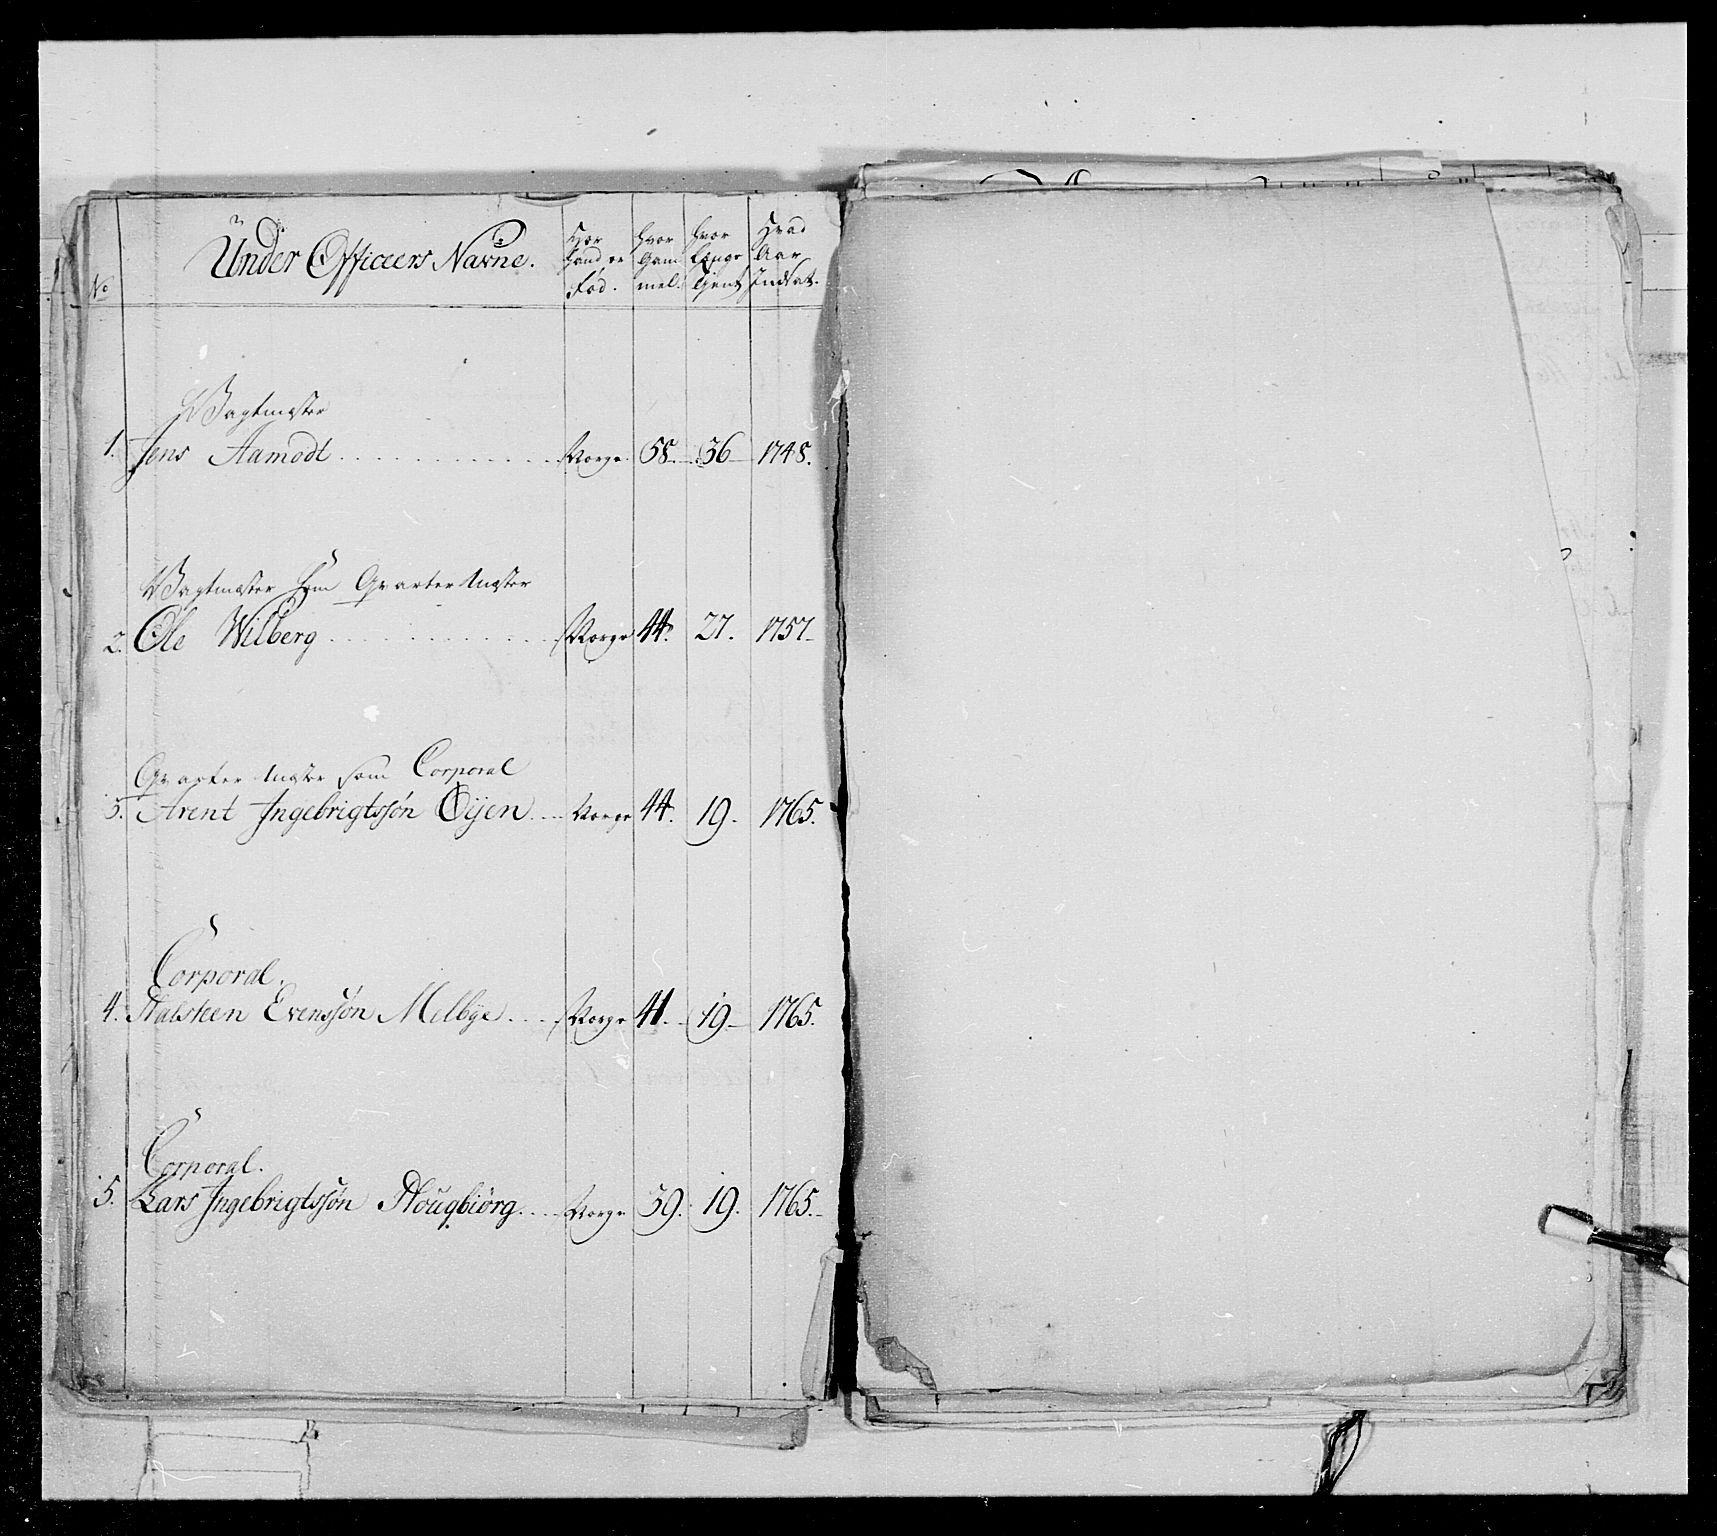 No
Ünder Officeers Navne.
Hvor hand er Fød.
hvor Gam mel.
hvor Lenge Tjent
Hvad Aar Indsat.
Wagtmester
1. Jens Aamodt Norge. 58. 36 1748.
Wagtmester som Qvarter Mester
2. Ole Wilberg Norge 44. 27. 1757
Qvarter Mester som Corporal
3. Arent Ingebrigtssøn Öÿen Norge 44. 19. 1765.
Corporal.
4. Halsteen Evenssøn Melbÿe Norge 41. 19 1765.
Corporal.
5. Lars Ingebrigtssøn Hougbiörg Norge 39. 19. 1765.